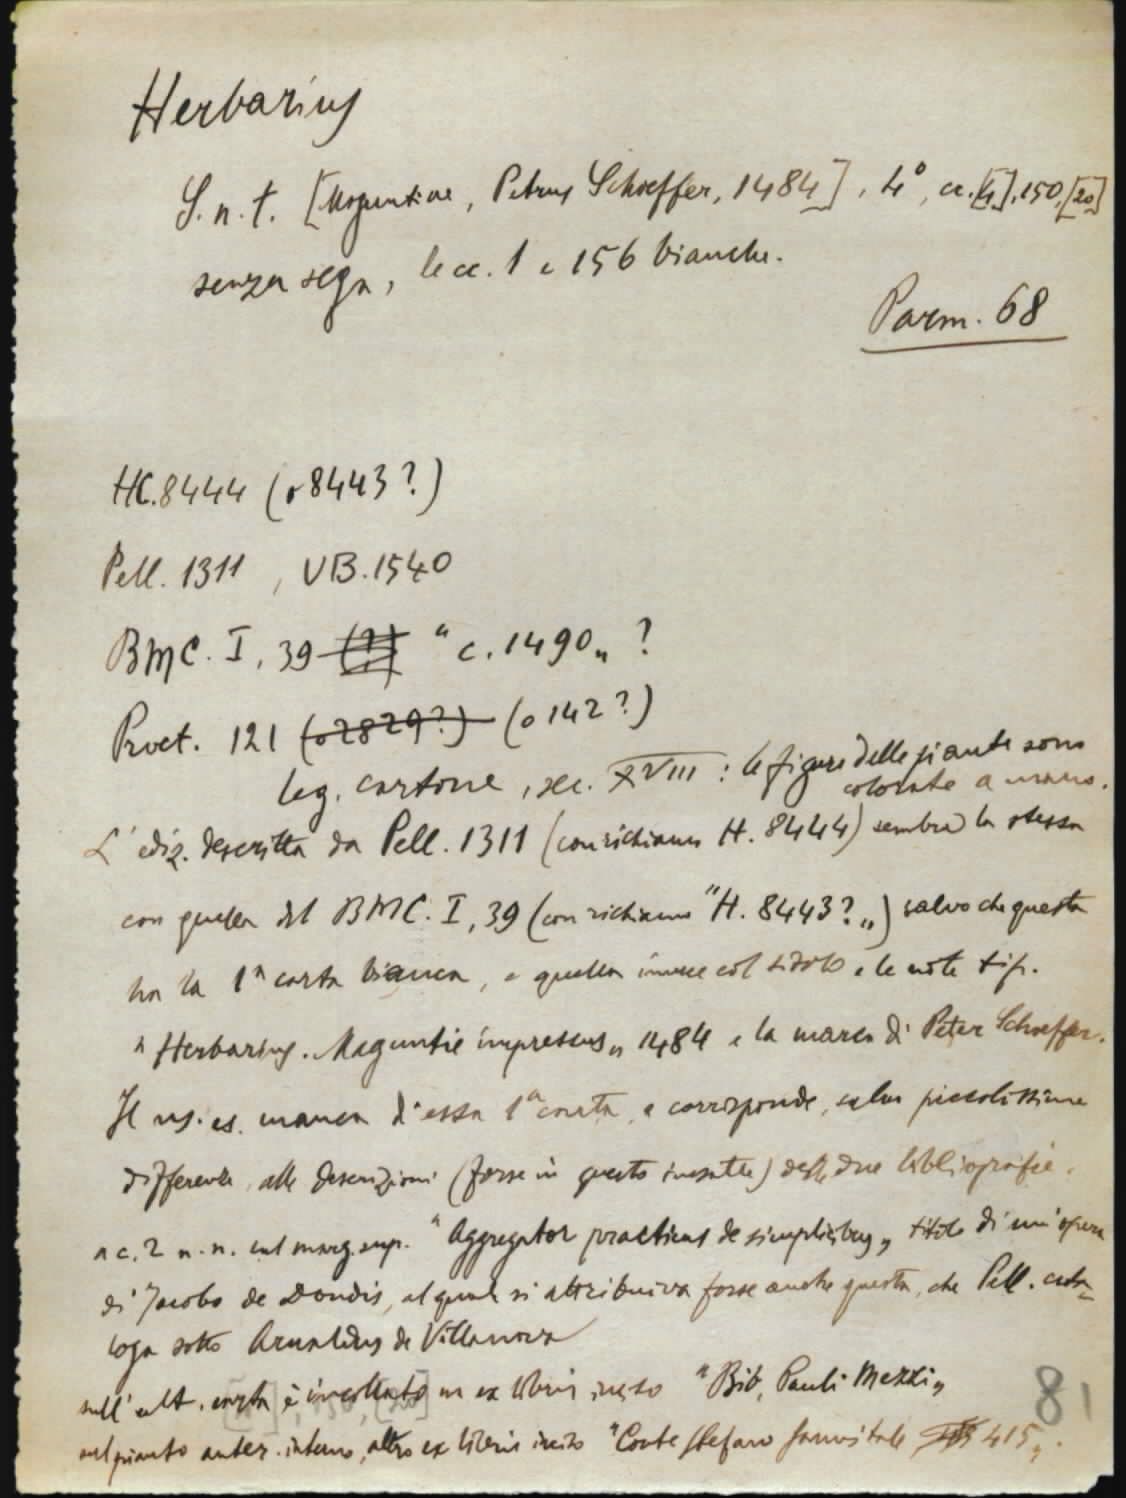 Herbarius
S. n. t. [Moguntiae, Petrus Schoeffer, 1484], 4°, cc. [4], 150, [20]
senza segn, le cc. 1 e 156 bianche.
Parm. 68
HC. 8444 (o 8443?)
Pell. 1311, VB. 1540
BMC. I, 39 (?) "c. 1490" ?
Proct. 121 (o 2829?) (o 142?)
leg. cartone, sec. XVIII: le figure delle piante sono
colorate a mano.
L'ediz. descritta da Pell. 1311 (con richiamo H. 8444) sembra la stessa
con quella del BMC. I, 39 (con richiamo "H. 8443?") salvo che questa
ha la 1ª carta bianca, e quella invece col titolo e le note tip.
"Herbarius. Maguntie impressus" 1484 e la marca di Peter Schoeffer.
Il ns. es. manca d'essa 1ª carta, e corrisponde, salvo piccolissime
differenze, alle descrizioni (forse in questo inesatte) delle due bibliografie.
a c. 2 n. n. sul marg. sup. "Aggregator practicus de simplicibus" titolo di un'opera
di Jacobo de Dondis, al quale si attribuiva forse anche questa, che Pell. cata-
loga sotto Arnaldus de Villanova
sull'ult. carta è incollato un ex libris inciso "Bib. Pauli Mezzi"
sul piatto anter. interno, altro ex libris inciso "Conte Stefano Sanvitale 415".
81